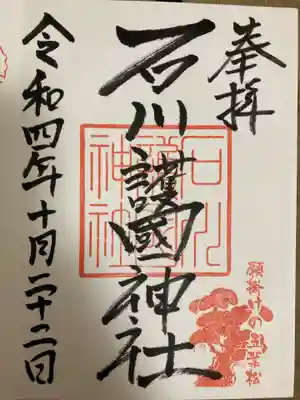 奉拝
石川護國神社
令和四年十月二十二日
石川
護國
神社
願掛けの五葉松